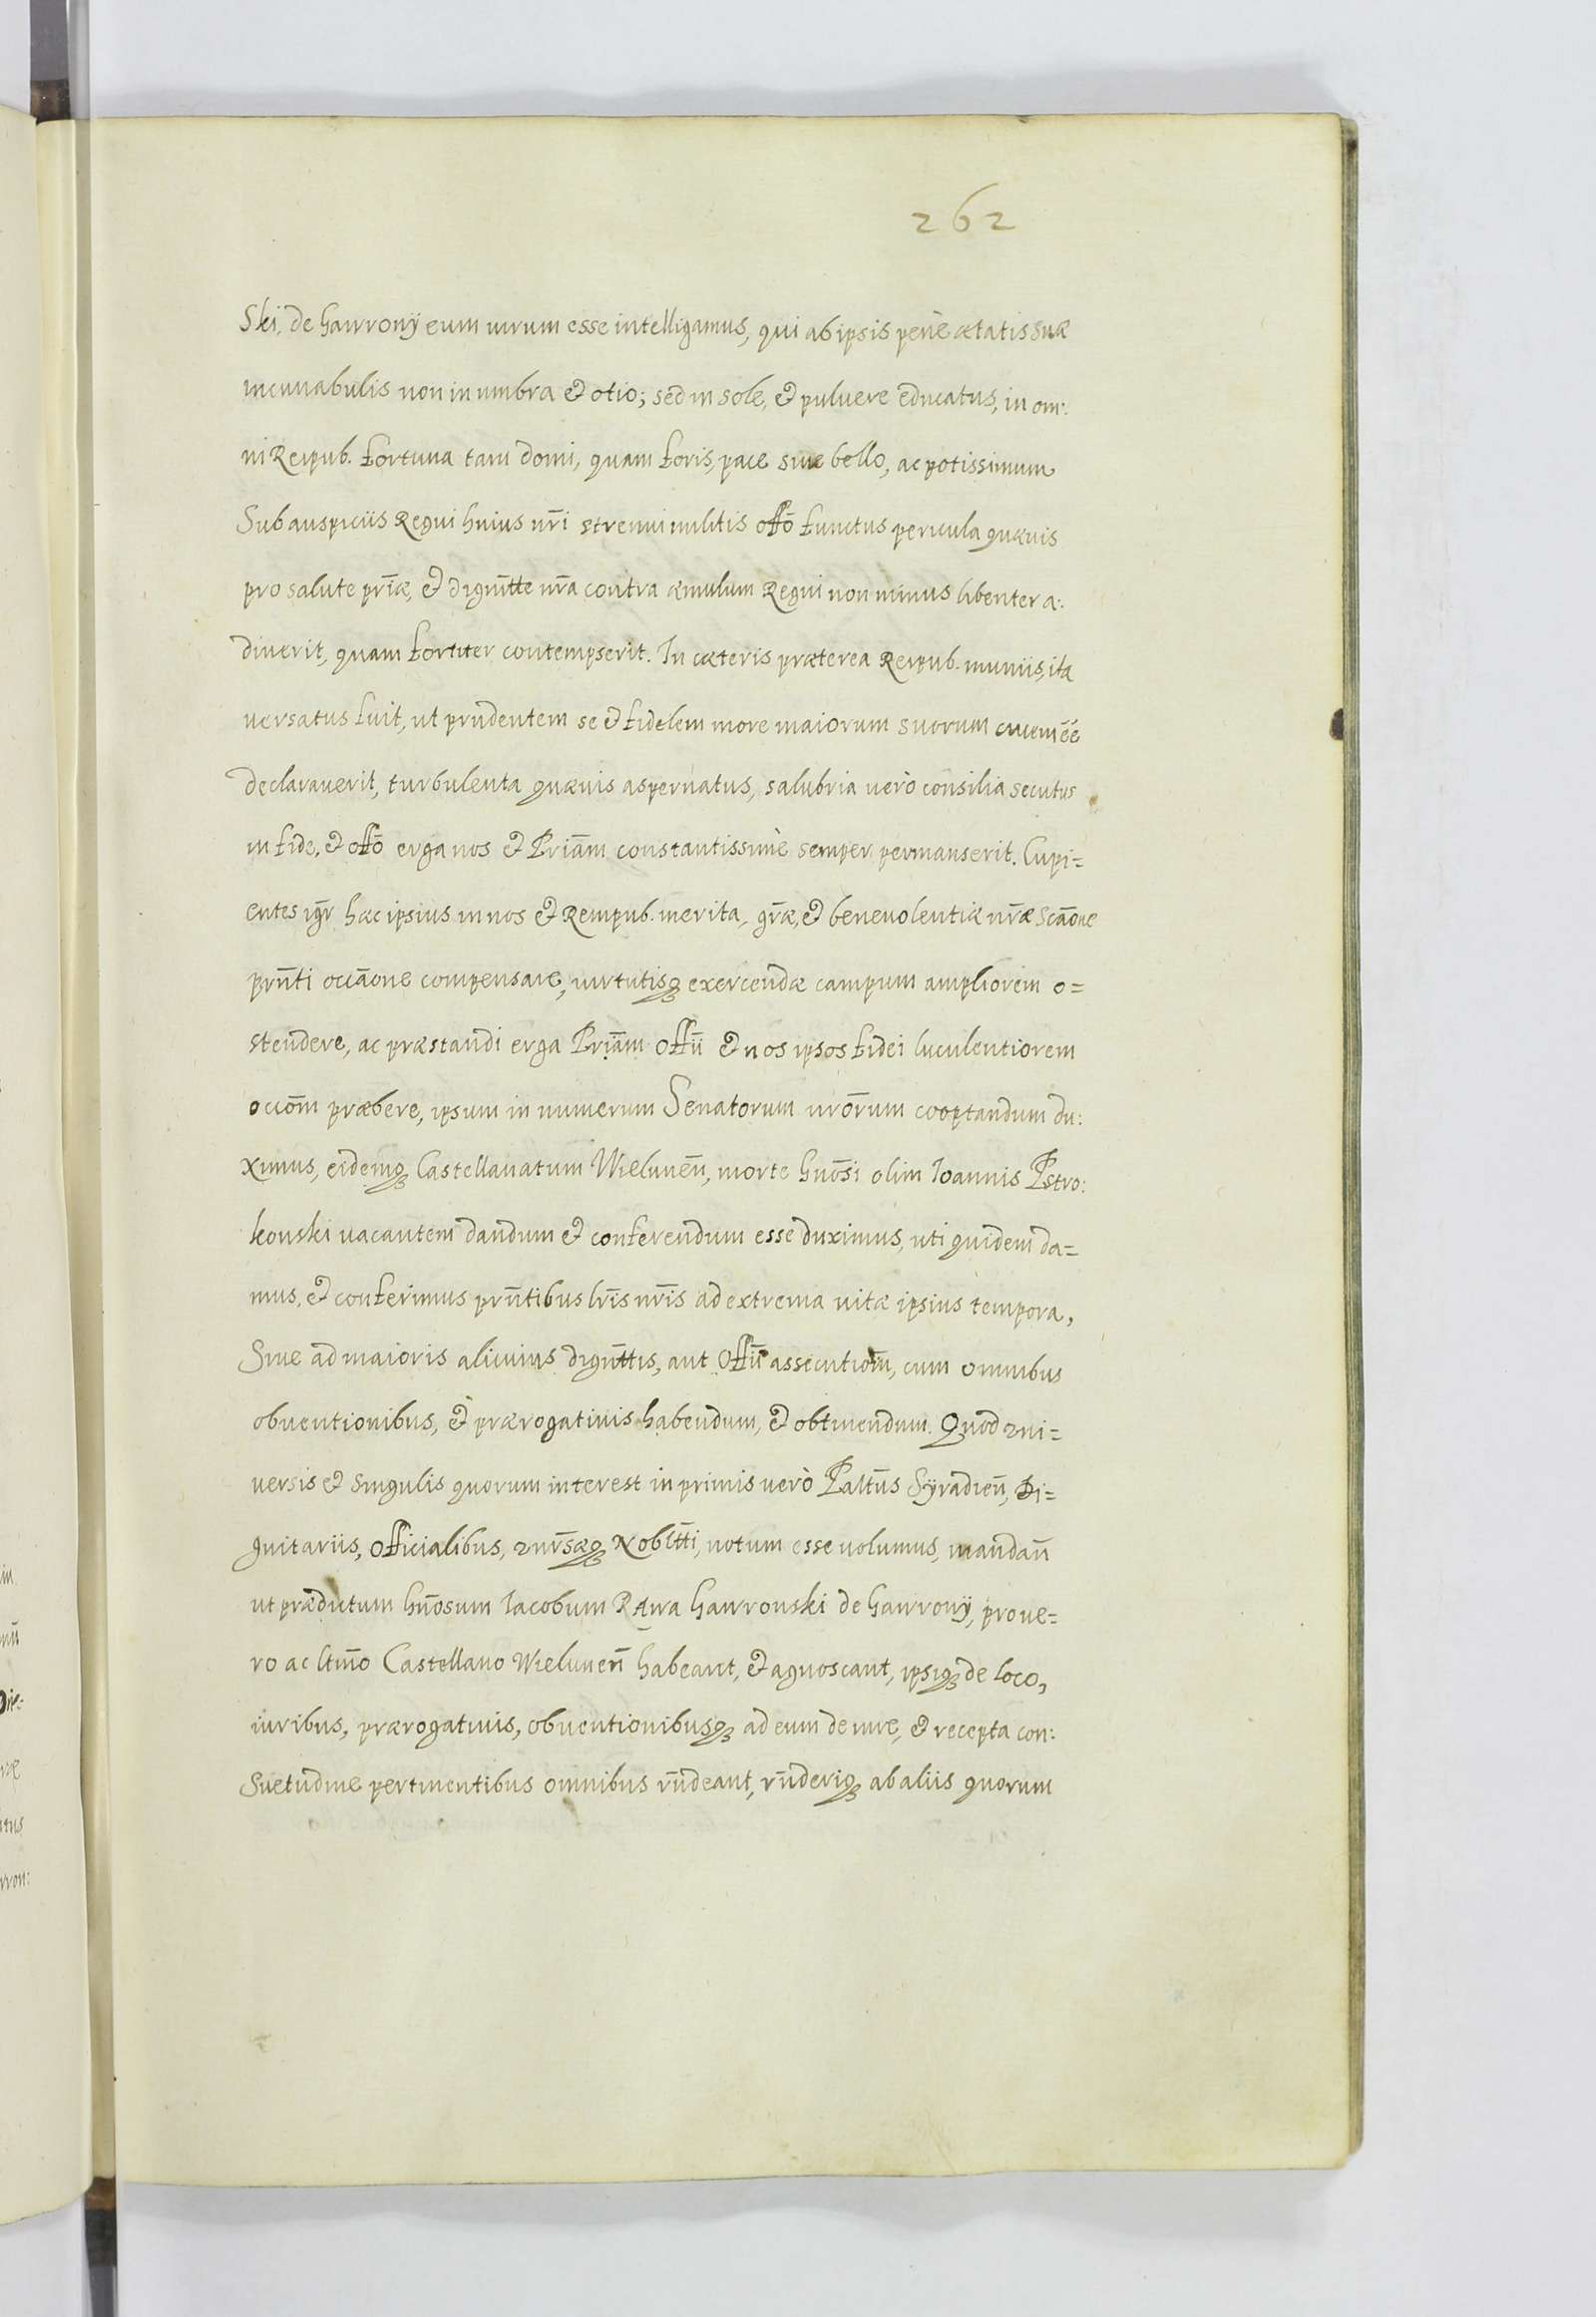 262
Ski, de Gawrony eum uirum esse intelligamus, qui ab ipsis penè ætatis suæ
incunabulis non in umbra & otio; sed in sole, & puluere educatus, in om:
ni Reipub. fortuna tam domi, quam foris, pace siue bello, ac potissimum
Sub auspiciis Regni huius nr̄i strenui militis offō functus pericula quæuis
pro salute pr̄iæ, & dignīt̄te nr̄a contra æmulum Regni non minus libenter a:
diuerit, quam fortiter contempserit. In cæteris præterea Reipub. muniis, ita
versatus fuit, ut prudentem se & fidelem more maiorum suorum ciuem eē̄
declarauerit, turbulenta quæuis aspernatus, salubria uerò consilia secutus
in fide, & offō erga nos & Priām constantissimè semper permanserit. Cupi=
entes igr̄ hæc ipsius in nos & Rempub. merita, gr̄æ, & beneuolentiæ nr̄æ
prn̄ti occāone compensare, uirtutisq; exercendæ campum ampliorem o=
stendere, ac præstandi erga Priām offīi & nos ipsos fidei luculentiorem
occōm præbere, ipsum in numerum Senatorum nrōrum cooptandum du:
ximus, eidemq; Castellanatum Wielunen̄, morte Gnōsi olim Ioannis Pstro:
konski uacantem dandum & conferendum esse duximus, uti quidem da=
mus, & conferimus prn̄tibus lr̄is nr̄is ad extrema uitæ ipsius tempora,
Siue ad maioris alicuius dignīt̄tis, aut Offīi assecutiōm, cum omnibus
obuentionibus, & prærogatiuis habendum, & obtinendum. Quod uni=
versis & singulis quorum interest in primis uerò Paltn̄s Syradien̄, Di=
gnitariis, Officialibus, unr̄sæq; Noblt̄ti, notum esse uolumus, mandan̄
ut prædictum Gn̄osum Iacobum Rawa Gawronski de Gawrony, pro ue=
ro ac ltm̄o Castellano Wielunen̄ habeant, & agnoscant, ipsiq; de loco,
iuribus, prærogatiuis, obuentionibusq; ad eum de iure, & recepta con:
Suetudine pertinentibus omnibus rn̄deant, rn̄deriq; ab aliis quorum